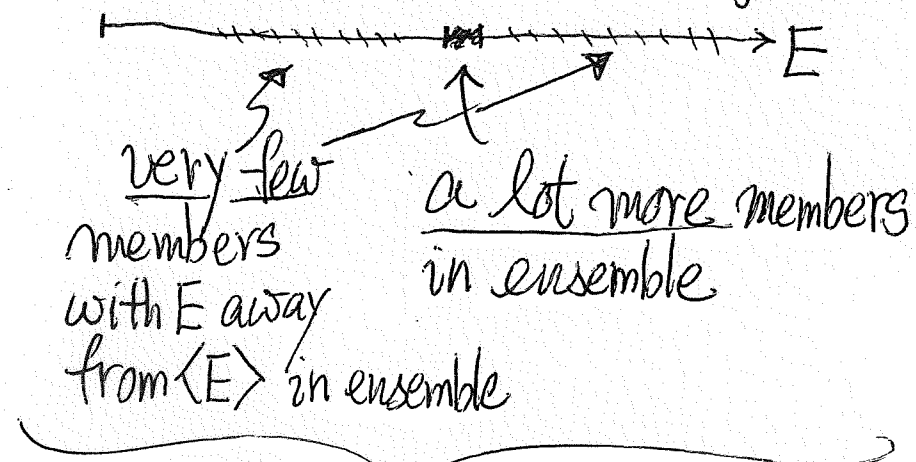 E
very few
members
with E away
from <E> in ensemble
a lot more members
in ensemble